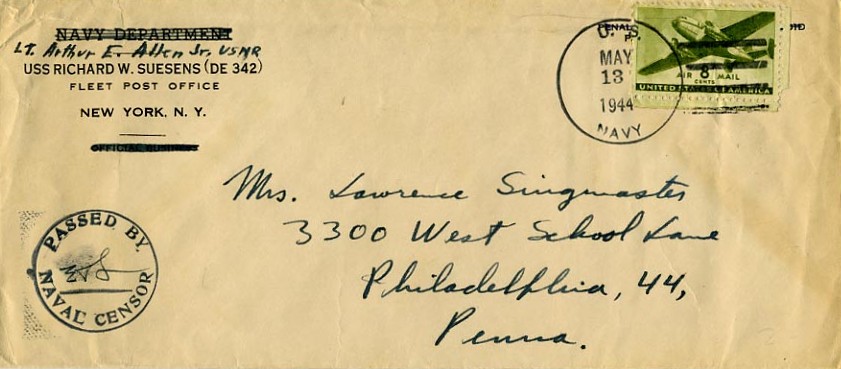 NAVY DEPARTMENT
Lt. Arthur E. Allen Jr. USNR
USS RICHARD W. SUESENS (DE 342)
FLEET POST OFFICE
NEW YORK, N. Y.
OFFICIAL BUSINESS
PENAL
U. S.
MAY
13
1944
NAVY
AIR 8 MAIL
CENTS
UNITED STATES OF AMERICA
Mrs. Lawrence Singmaster
3300 West School Lane
Philadelphia, 44,
Penna.
PASSED BY
NAVAL CENSOR